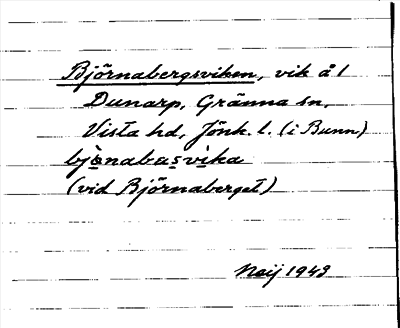 Björnabergsviken, vik å 1
Dunarp, Gränna sn,
Vista hd, Jönk. l. (i Bunn)
bjö̀nabasvìka
(vid Björnaberget)
Noij 1943